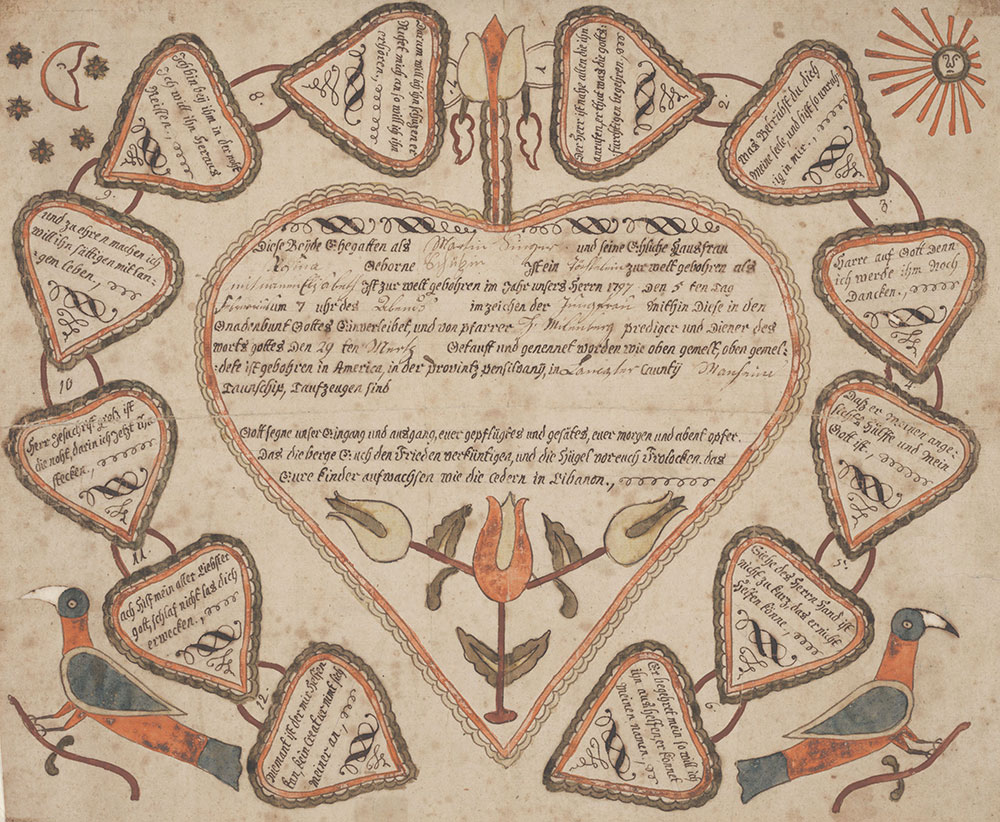 Diese Beyde Ehegatten als Martin und seine Ehliche Hausfrau
Rosina Geborne Ist ein zur welt gebohren als
mit namen Ist zur welt gebohren im Jahr unsers Heren 1797 den 5 ten Tag
um 7 uhr des Abends im zeichen der Jungfrau Mithin Diese in den
Gnadenbunt Gottes Einverleibet, und von pfarrer prediger und Diener des
worts gottes Den 29 ten Mertz Getauft und genennet worden wie oben gemelt, oben gemel-
dete ist gebohren in America, in der provintz pensilvany, in County
Taunschip, Taufzeugen sind
Gott segne unser Eingang und ausgang, euer gepflügtes und gesätes, euer morgen und abent opfer.
Das die berge Euch den Frieden verküntigen, und die Hügel vor euch Frolocken, das
Eure kinder aufwachsen wie die cedern in Libanon.,
1
Der Herr ist nahe allen die ihn
anrufen, er thut was die gotts
fürchtigen begehren,
2
Was Betrübst du dich
Meine seele, und bist so unruh
ig in mir.,
3.
Harre auf Gott Denn
ich werde ihm Noch
Dancken.,
4
Daß er Meinen ange
sichts Hülffe und Mein
Gott ist.,
5.
Siehe des Herren Hand ist
nicht zu kurz, das er nicht
Helfen könne.,
6
Er begehret mein so will ich
ihm aushelfen, er kennet
meinen namen,
7
Darum will ich ihn schützen er
Rufet mich an so will ich ihn
erhören,
8.
Ich bin bey ihm in der noht
Ich will ihn Heraus
Reissen.,
9.
und zu ehren machen ich
will ihn sättigen mit lan-
gem leben.,
10
Herr Jesu christ groß ist
die noht, darin ich jetzt
stecken.,
11.
ach Hilf mein aller Liebster
gott, schlaf nicht las dich
erwecken.,
12.
Niemant ist der mir Helfen
kan, kein Creatur nimt sich
meiner an.,